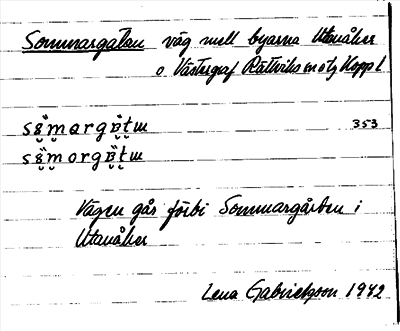 Sommargatan väg mell byarna Utanåker
o Västergraf Rättviks sn o tg Kopp l
353
Vägen går förbi Sommargården i
Utanåker
Lena Gabrielsson 1942